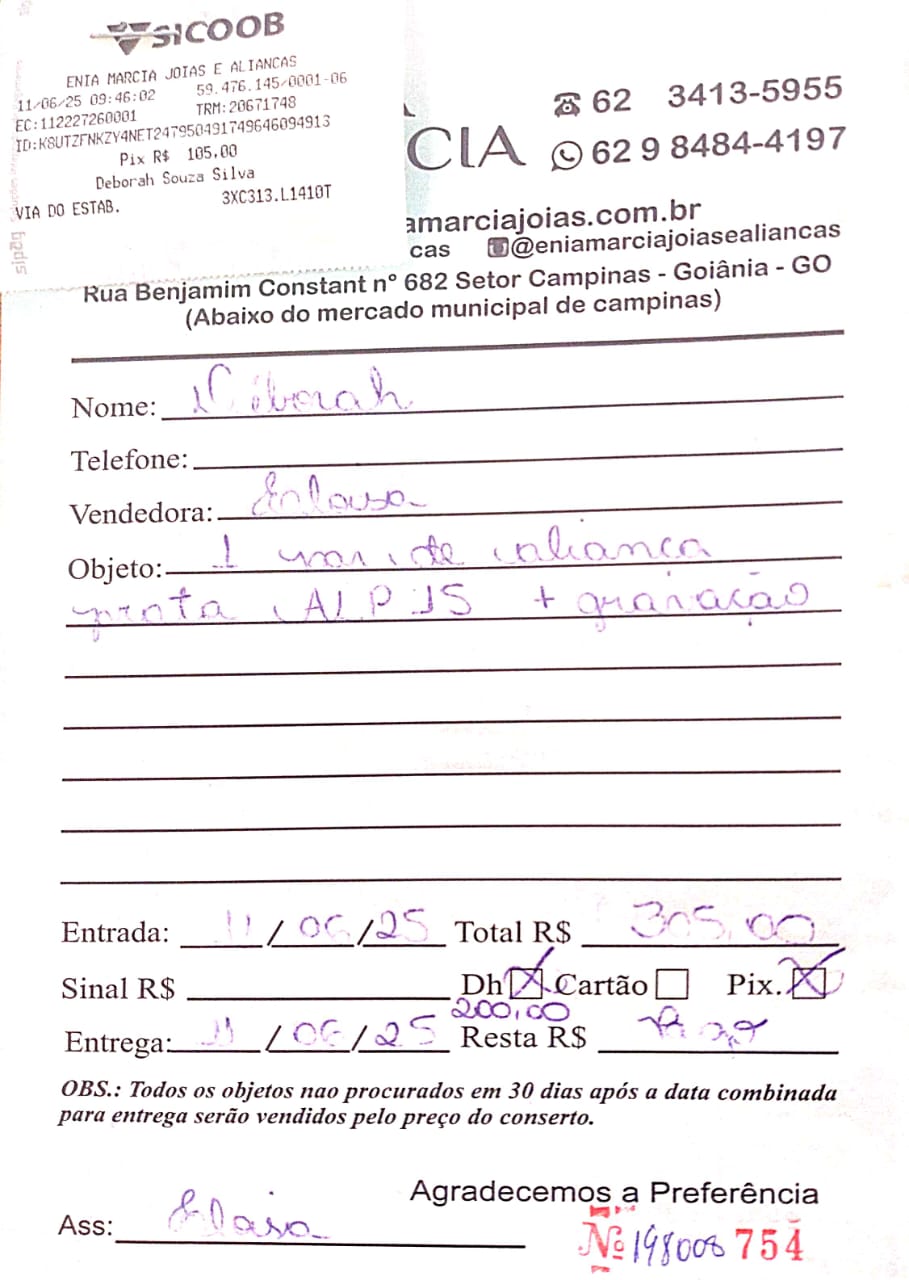 SICOOB
ENIA MARCIA JOIAS E ALIANCAS
11/06/25 09:46:02 59.476.145/0001-06
EC:112227260001 TRM:20671748
ID:K8UTZFNKZY4NET247950491749646094913
Pix R$ 105.00
Deborah Souza Silva
VIA DO ESTAB. 3XC313.L1410T
sipag
62 3413-5955
CIA 62 9 8484-4197
amarciajoias.com.br
cas @eniamarciajoiasealiancas
Rua Benjamim Constant nº 682 Setor Campinas - Goiânia - GO
(Abaixo do mercado municipal de campinas)
Nome: Déborah
Telefone:
Vendedora:
Objeto: 1 par de aliança
prata ALP JS + gravação
Entrada: 11/06/25 Total R$ 305,00
Sinal R$ Dh X Cartão Pix. X
200,00
Entrega: 11/06/25 Resta R$
OBS.: Todos os objetos nao procurados em 30 dias após a data combinada
para entrega serão vendidos pelo preço do conserto.
Agradecemos a Preferência
Ass:
Nº 198008 754